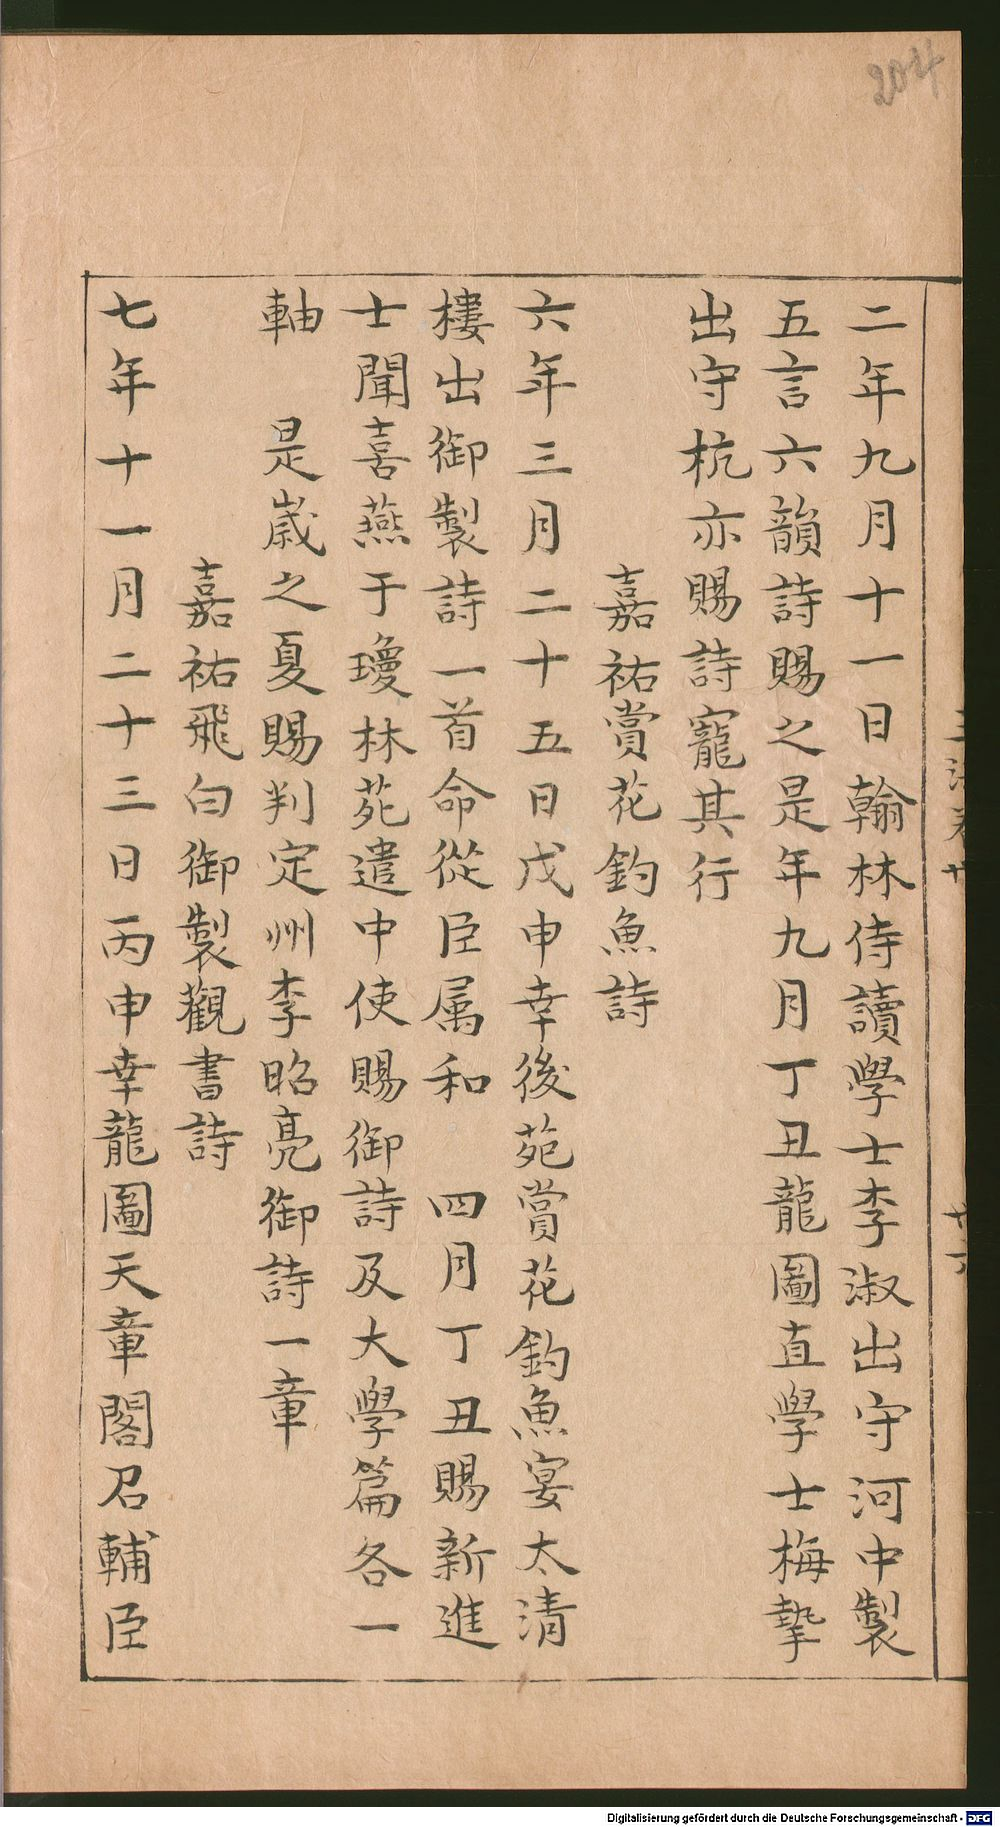 204
二年九月十一日翰林侍讀學士李淑出守河中製
五言六韻詩賜之是年九月丁丑龍圖直學士梅摯
出守杭亦賜詩寵其行
嘉祐賞花釣魚詩
六年三月二十五日戊申幸後苑賞花釣魚宴太清
樓出御製詩一首命從臣属和　四月丁丑賜新進
士聞喜燕于瓊林苑遣中使賜御詩及大學篇各一
軸　是歲之夏賜判定州李昭亮御詩一章
嘉祐飛白御製觀書詩
七年十一月二十三日丙申幸龍圖天章閣召輔臣
Digitalisierung gefördert durch die Deutsche Forschungsgemeinschaft - DFG